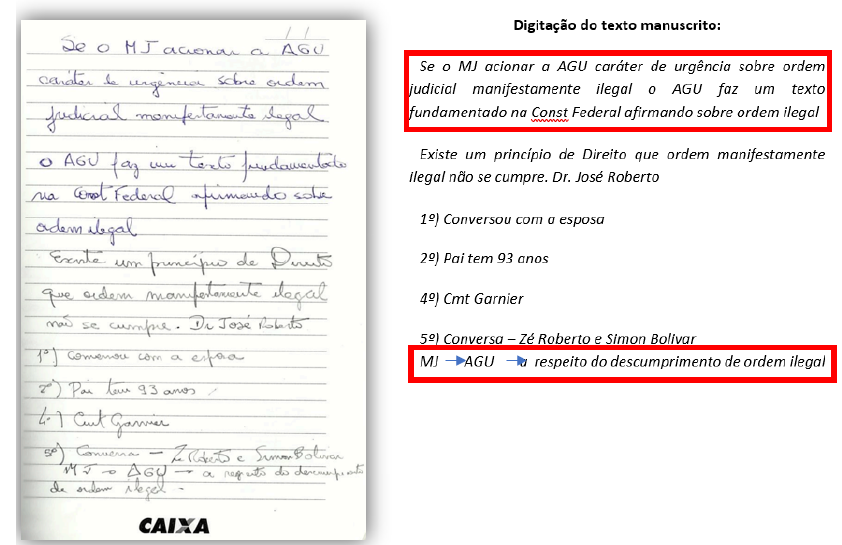 Se o MJ acionar a AGU
caráter de urgência sobre ordem
judicial manifestamente ilegal.
o AGU faz um texto fundamentado
na Const Federal afirmando sobre
ordem ilegal
Existe um princípio de Direito
que ordem manifestamente ilegal
não se cumpre. Dr José Roberto
1º) Conversou com a esposa
2º) Pai tem 93 anos
4º) Cmt Garnier
5º) Conversa – Zé Roberto e Simon Bolivar
MJ → AGU → a respeito do descumprimento
de ordem ilegal -
CAIXA
Digitação do texto manuscrito:
Se o MJ acionar a AGU caráter de urgência sobre ordem
judicial manifestamente ilegal o AGU faz um texto
fundamentado na Const Federal afirmando sobre ordem ilegal
Existe um princípio de Direito que ordem manifestamente
ilegal não se cumpre. Dr. José Roberto
1º) Conversou com a esposa
2º) Pai tem 93 anos
4º) Cmt Garnier
5º) Conversa – Zé Roberto e Simon Bolivar
MJ → AGU → a respeito do descumprimento de ordem ilegal